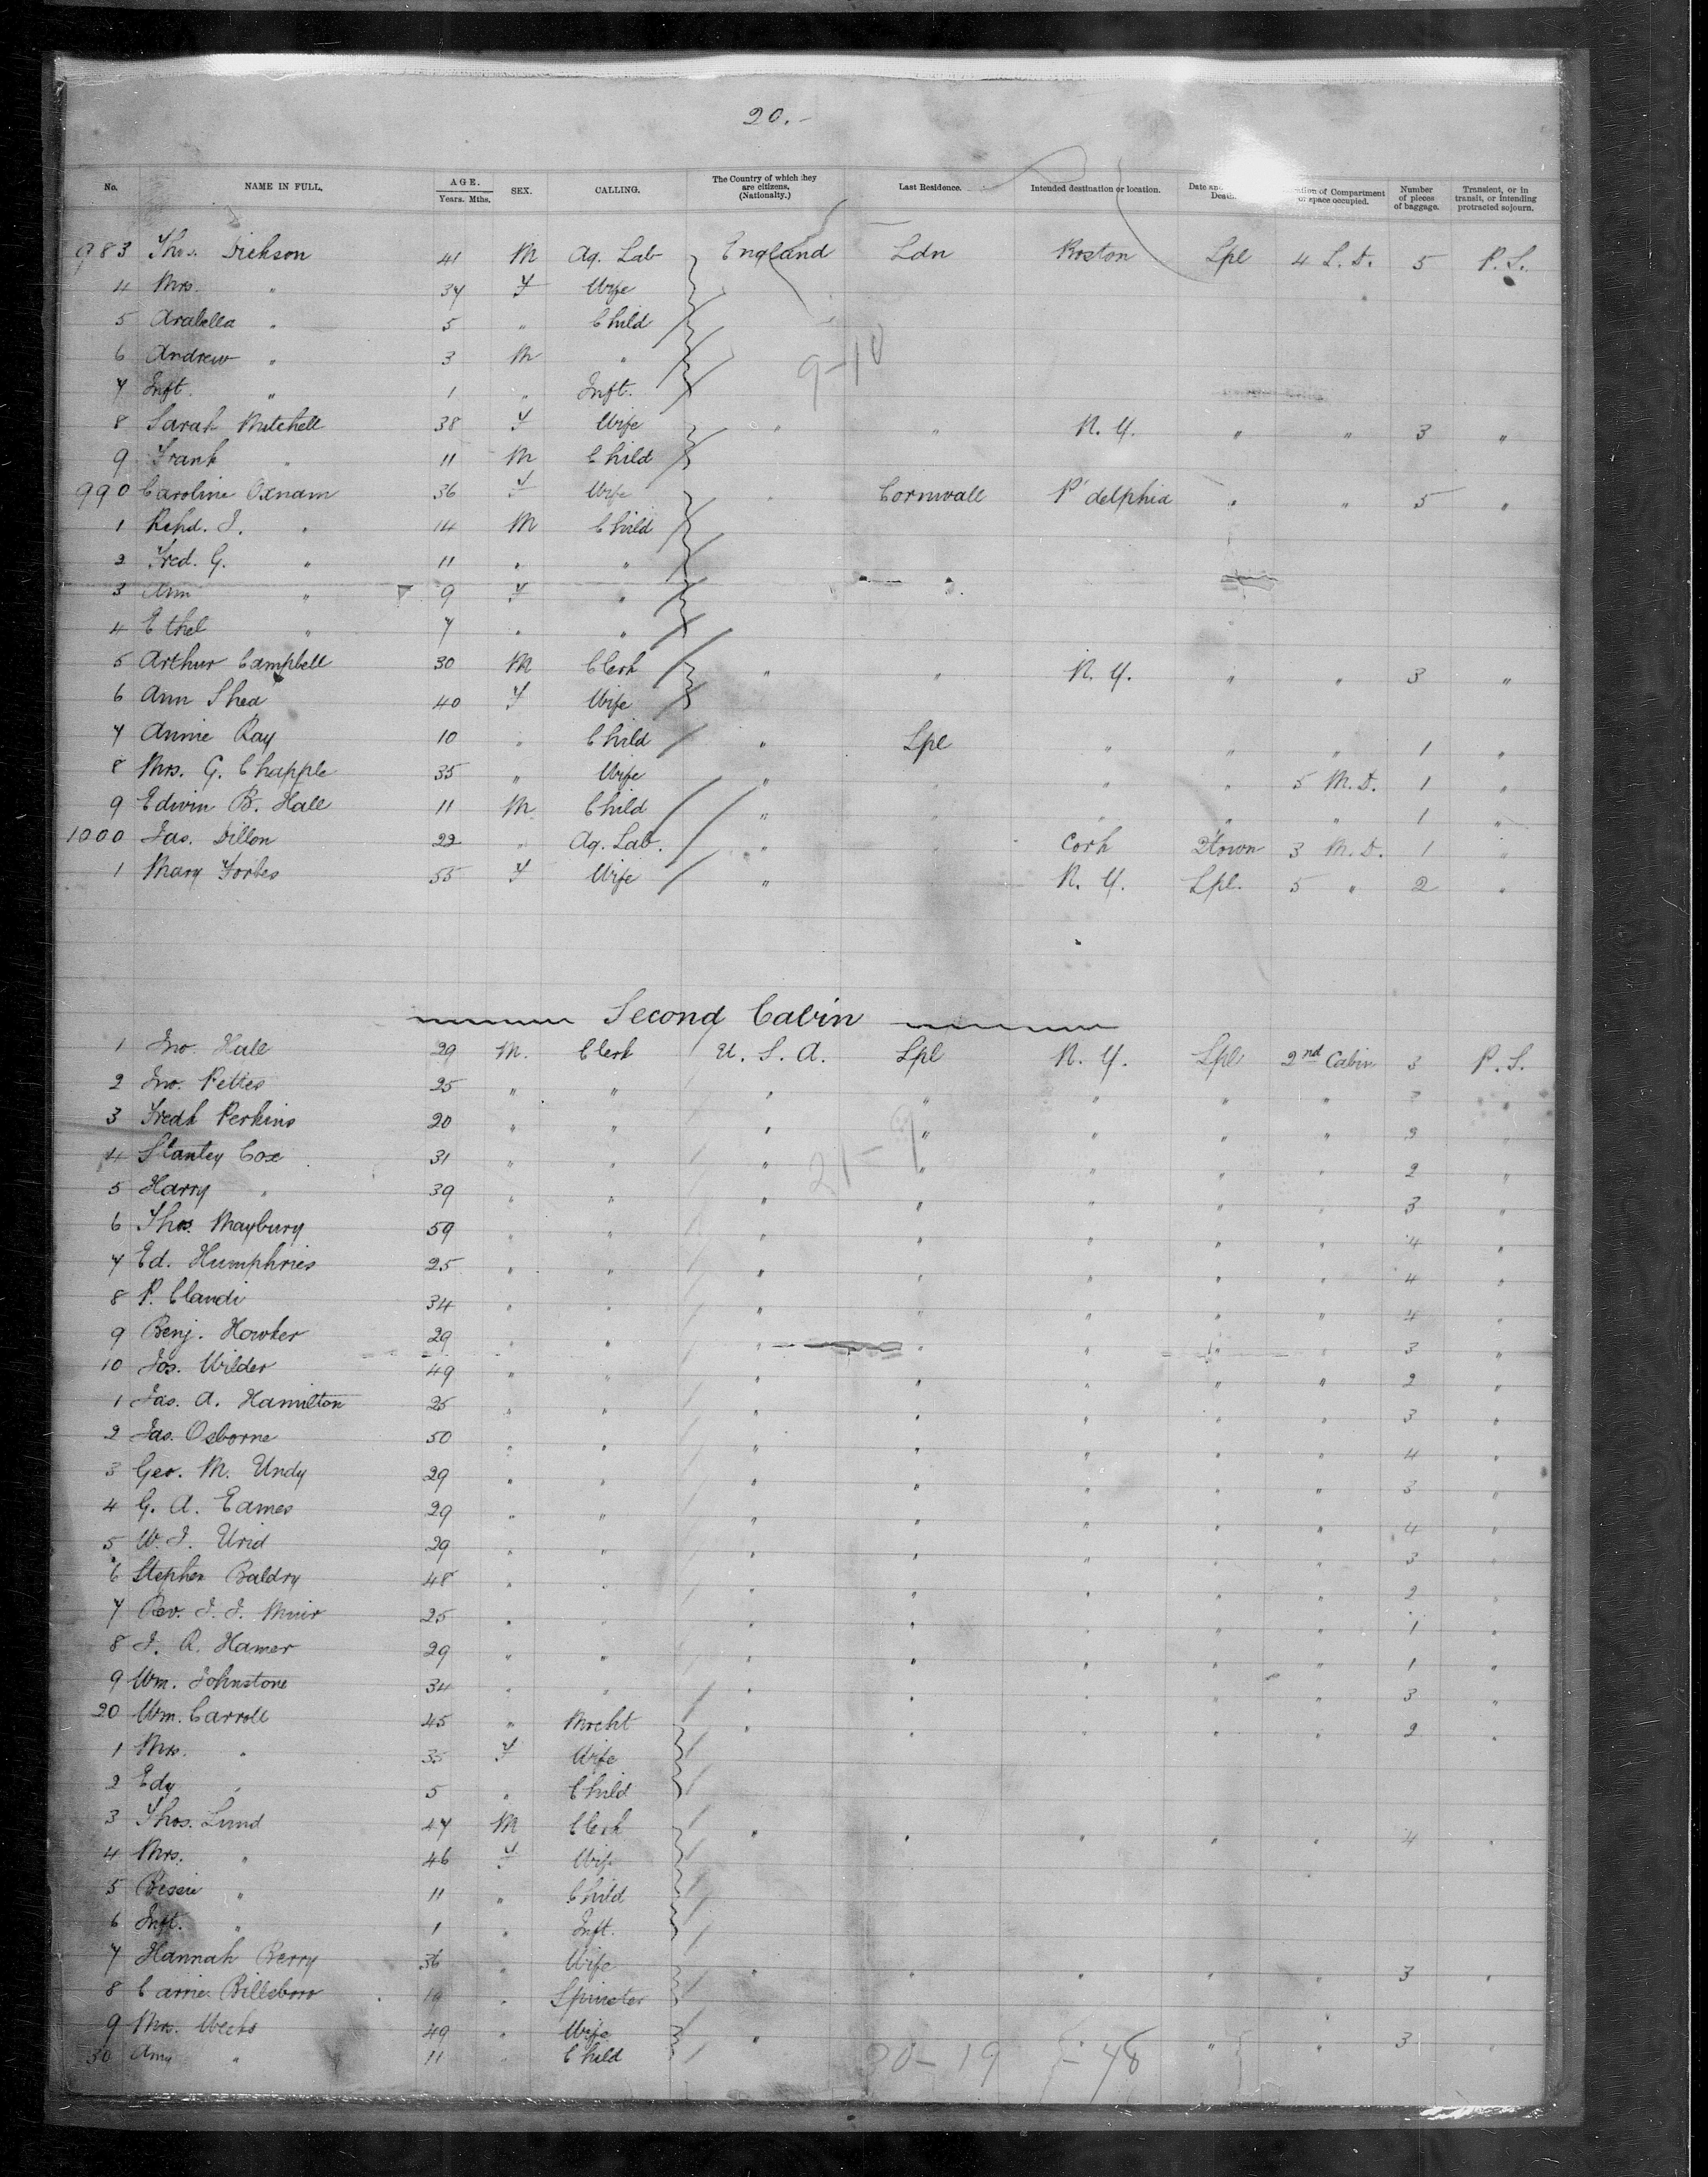 20.-
No. NAME IN FULL. AGE. Years. Mths. SEX. CALLING. The Country of which they are citizens. (Nationalty.) Last Residence. Intended destination or location. Date and Death. Location of Compartment or space occupied. Number of pieces of baggage. Transient, or in transit, or intending protracted sojourn.
983 Thos. Dickson 41 M Ag. Lab England Ldn Boston Lpl 4 L. D. 5 P. S.
4 Mrs. " 34 F Wife
5 Arabella " 5 " Child
6 Andrew " 3 M "
7 Inft. " 1 " Inft.
9-10
8 Sarah Mitchell 38 F Wife " " N. Y. " " 3 "
9 Frank " 11 M Child
990 Caroline Oxnam 36 F Wife " Cornwall P'delphia " " 5 "
1 Rchd. J. " 14 M Child
2 Fred. G. " 11 " "
3 Ann " 9 F "
4 Ethel " 7 " "
5 Arthur Campbell 30 M Clerk " " N. Y. " " 3 "
6 Ann Shea 40 F Wife
7 Annie Ray 10 " Child " Lpl " " " 1 "
8 Mrs. G. Chapple 35 " Wife " " " " 5 M. D. 1 "
9 Edwin B. Hall 11 M Child " " " " " 1 "
1000 Jas. Dillon 22 " Ag. Lab. " " Cork Qtown 3 M. D. 1 "
1 Mary Forbes 55 F Wife " N. Y. Lpl. 5 " 2 "
Second Cabin
1 Jno. Hall 29 M. Clerk U. S. A. Lpl N. Y. Lpl 2nd Cabin 3 P. S.
2 Jno. Pettes 25 " " " " " " " 3 "
3 Fredk Perkins 20 " " " " " " " 2 "
4 Stanley Cox 31 " " " " " " " 2 "
5 Harry " 39 " " " " " " " 3 "
21-9
6 Thos. Maybury 59 " " " " " " " 4 "
7 Ed. Humphries 25 " " " " " " " 4 "
8 P. Claudi 34 " " " " " " " 4 "
9 Benj. Howker 29 " " " " " " " 3 "
10 Jos. Wilder 49 " " " " " " " 2 "
1 Jas. A. Hamilton 25 " " " " " " " 3 "
2 Jas. Osborne 50 " " " " " " " 4 "
3 Geo. M. Undy 29 " " " " " " " 3 "
4 G. A. Eames 29 " " " " " " " 4 "
5 W. J. Urid 29 " " " " " " " 3 "
6 Stephen Baldry 48 " " " " " " " 2 "
7 Rev. J. J. Muir 25 " " " " " " " 1 "
8 J. R. Hamer 29 " " " " " " " 1 "
9 Wm. Johnstone 34 " " " " " " " 3 "
20 Wm. Carroll 45 " Mrcht " " " " " 2 "
1 Mrs. " 35 F Wife
2 Edy " 5 " Child
3 Thos. Lund 47 M Clerk " " " " " 4 "
4 Mrs. " 46 F Wife
5 Bessie " 11 " Child
6 Inft. " 1 " Inft.
7 Hannah Berry 36 " Wife " " " " " 3 "
8 Carrie Billsboro 19 " Spinster
9 Mrs. Weeks 49 " Wife " " " " 3 "
30 Amy " 11 " Child
20-19 48